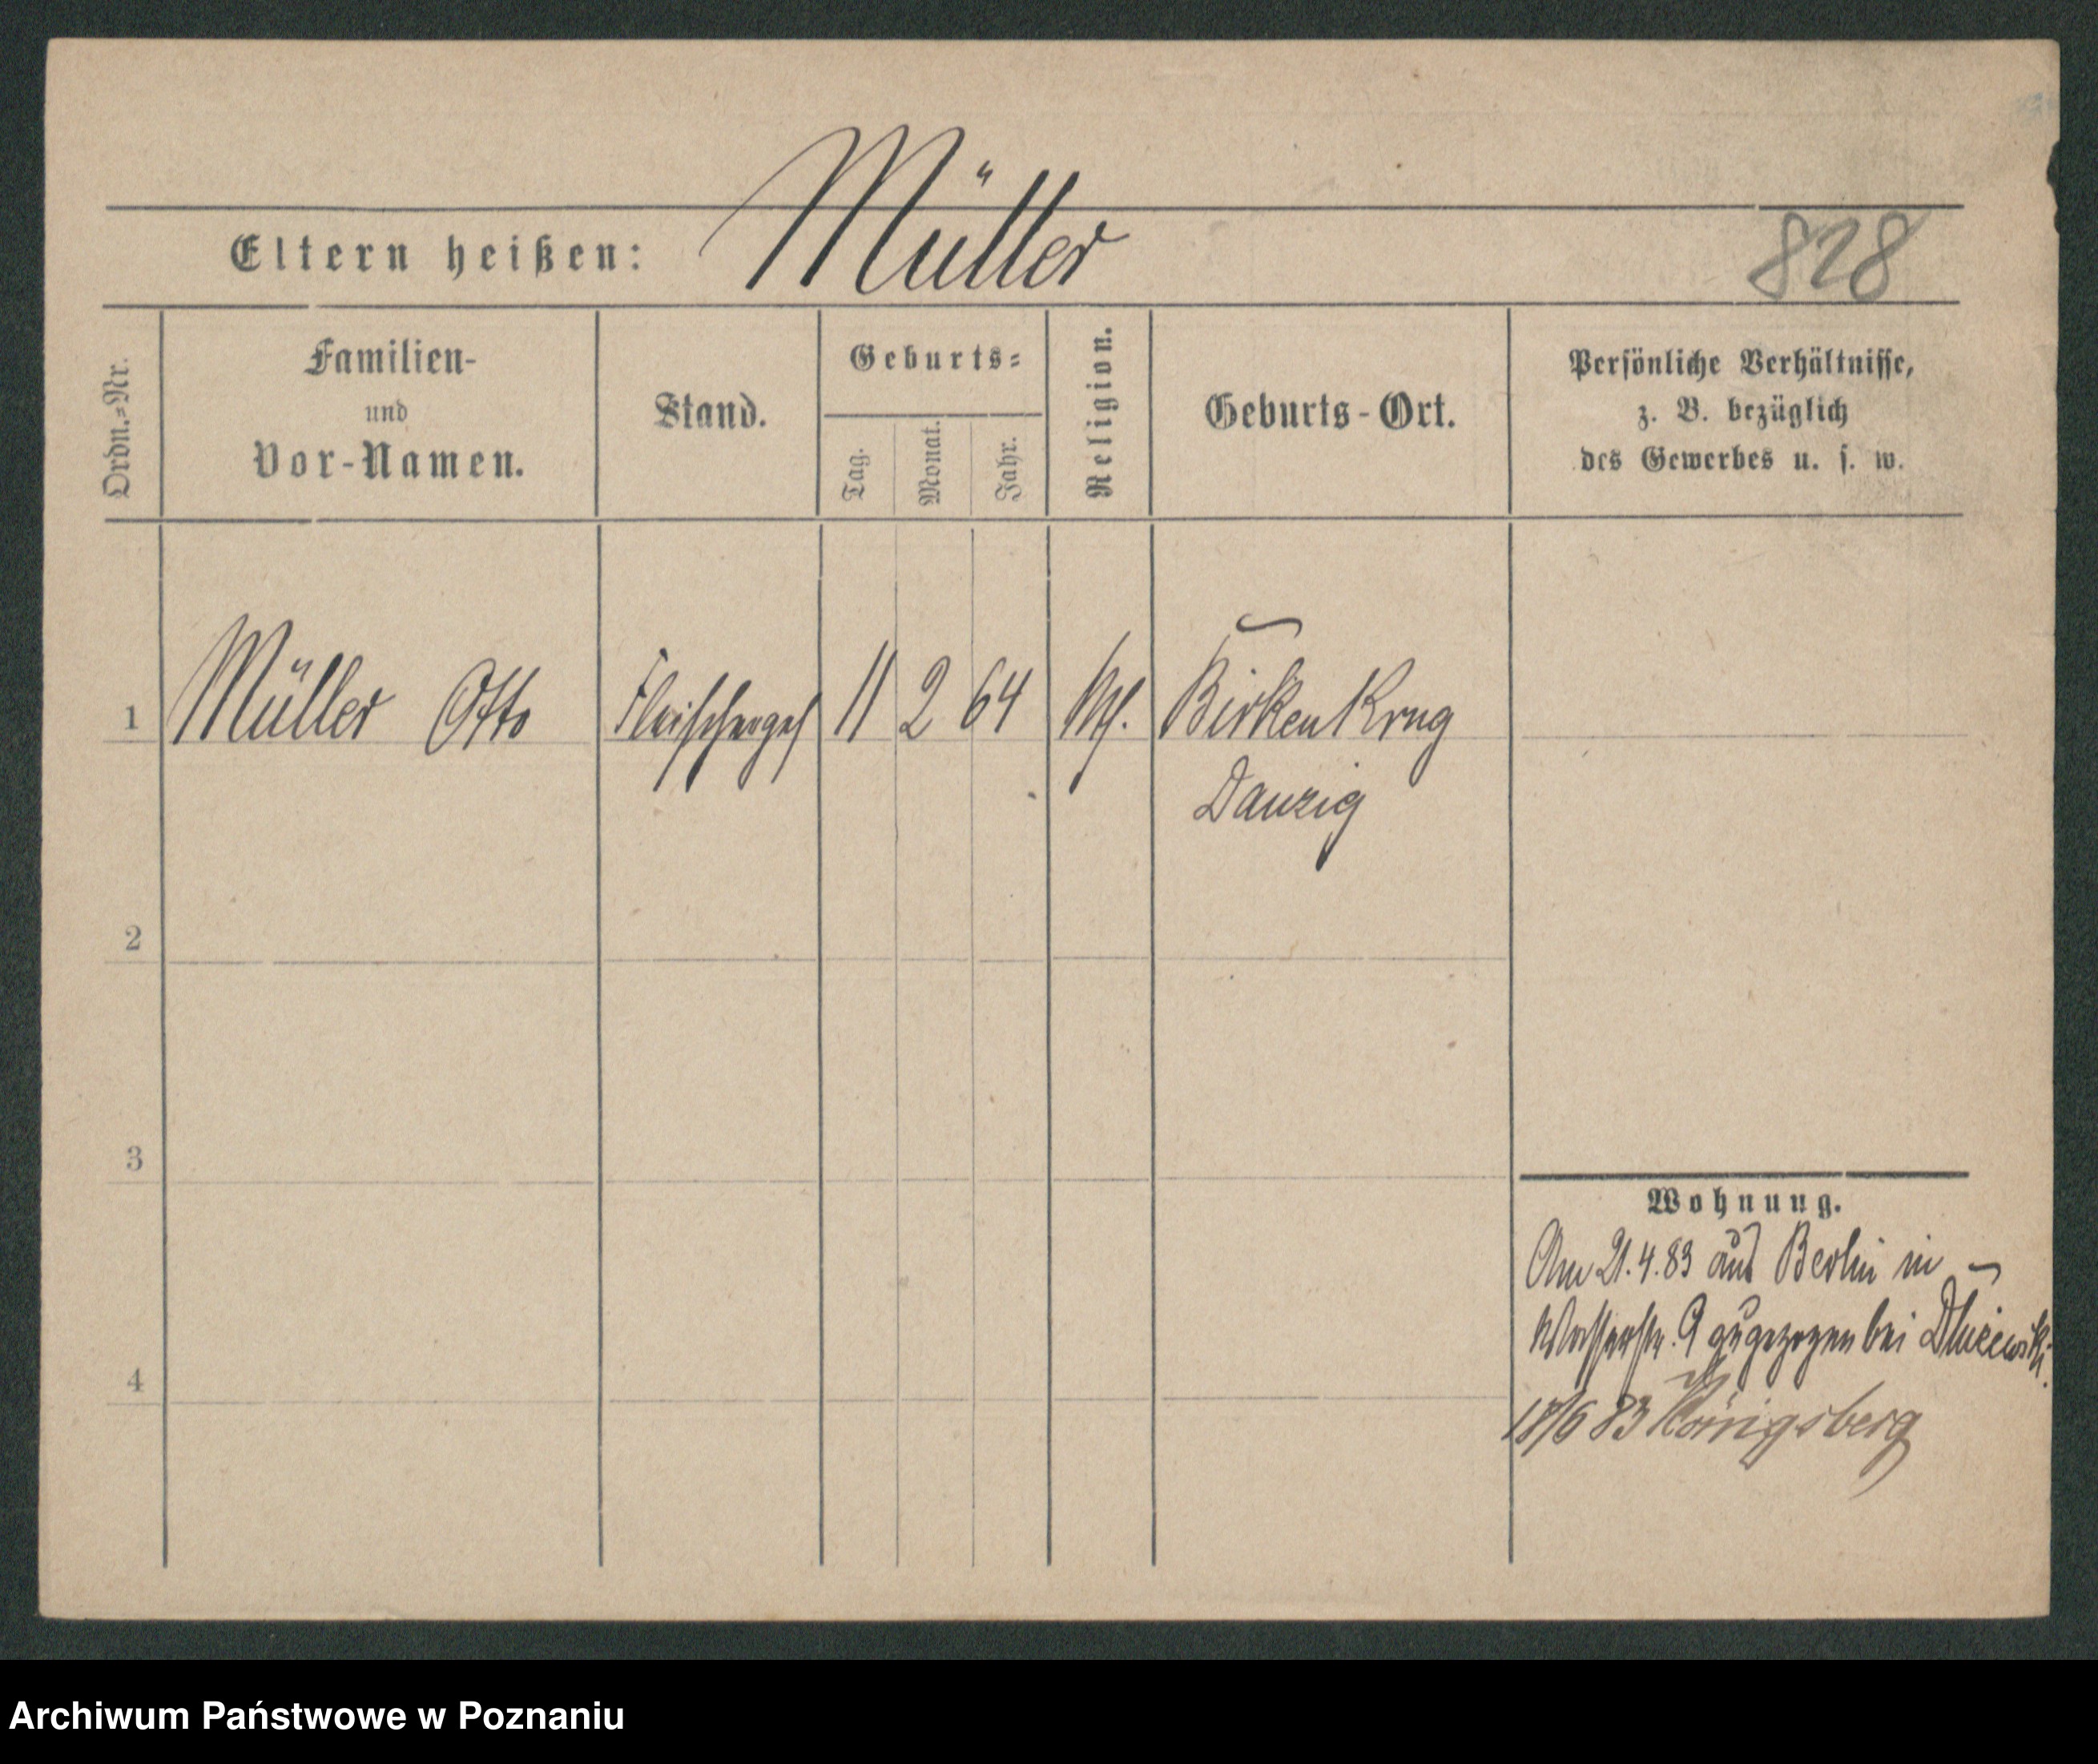 Eltern heißen: Müller 828
Ordn.=Nr.
Familien-
und
Vor-Namen.
Stand.
Geburts=
Tag.
Monat.
Jahr.
Religion.
Geburts-Ort.
Persönliche Verhältnisse,
z. B. bezüglich
des Gewerbes u. s. w.
1 Müller Otto Fleischerges 11 2 64 Birken Krug
Danzig
2
3
4
Wohnung.
Am 21.4.83 aus Berlin in
Wasserstr. 9 zugezogen bei
18/6 83 Königsberg
Archiwum Państwowe w Poznaniu